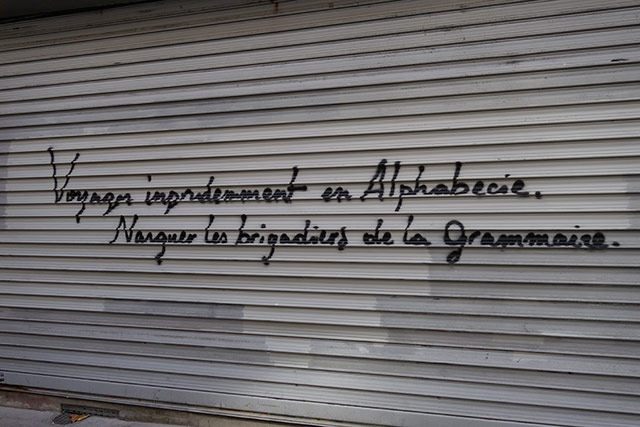 Voyager inprudemment en Alphabecie.
Narguer les brigadiers de la Grammaise.